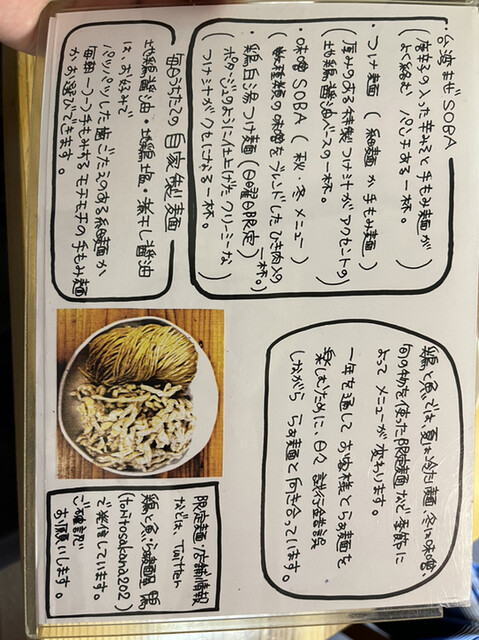 台湾まぜSOBA
(唐辛子の入った辛みそと手もみ麺が
よく絡む パンチある一杯。)
・つけ麺 (細麺か手もみ麺)
(厚みのある特製つけ汁がアクセントの
地鶏醤油ベースの一杯。)
・味噌SOBA (秋・冬メニュー)
(数種類の味噌をブレンドしたひき肉入りの一杯。)
・鶏白湯つけ麺 (日曜日限定)
(ポタージュのように仕上げたクリーミーな
つけ汁がクセになる一杯。)
毎日うちたての 自家製麺
地鶏醤油・地鶏塩・煮干し醤油
は、お好みで
パッツパツした歯ごたえのある細麺か
毎朝一つ一つ手もみするモチモチの手もみ麺
かお選びできます。
鶏と魚では夏は冷たい麺、冬は味噌、
旬の物を使った限定麺など季節に
よってメニューが変わります。
一年を通してお客様とらぁ麺を
楽しむために、日々試行錯誤
しながら らぁ麺と向き合っています。
限定麺・店舗情報
などは、Twitter
鶏と魚らぁ麺
(toritosakana202)
で発信しています。
ご確認
お願いします。